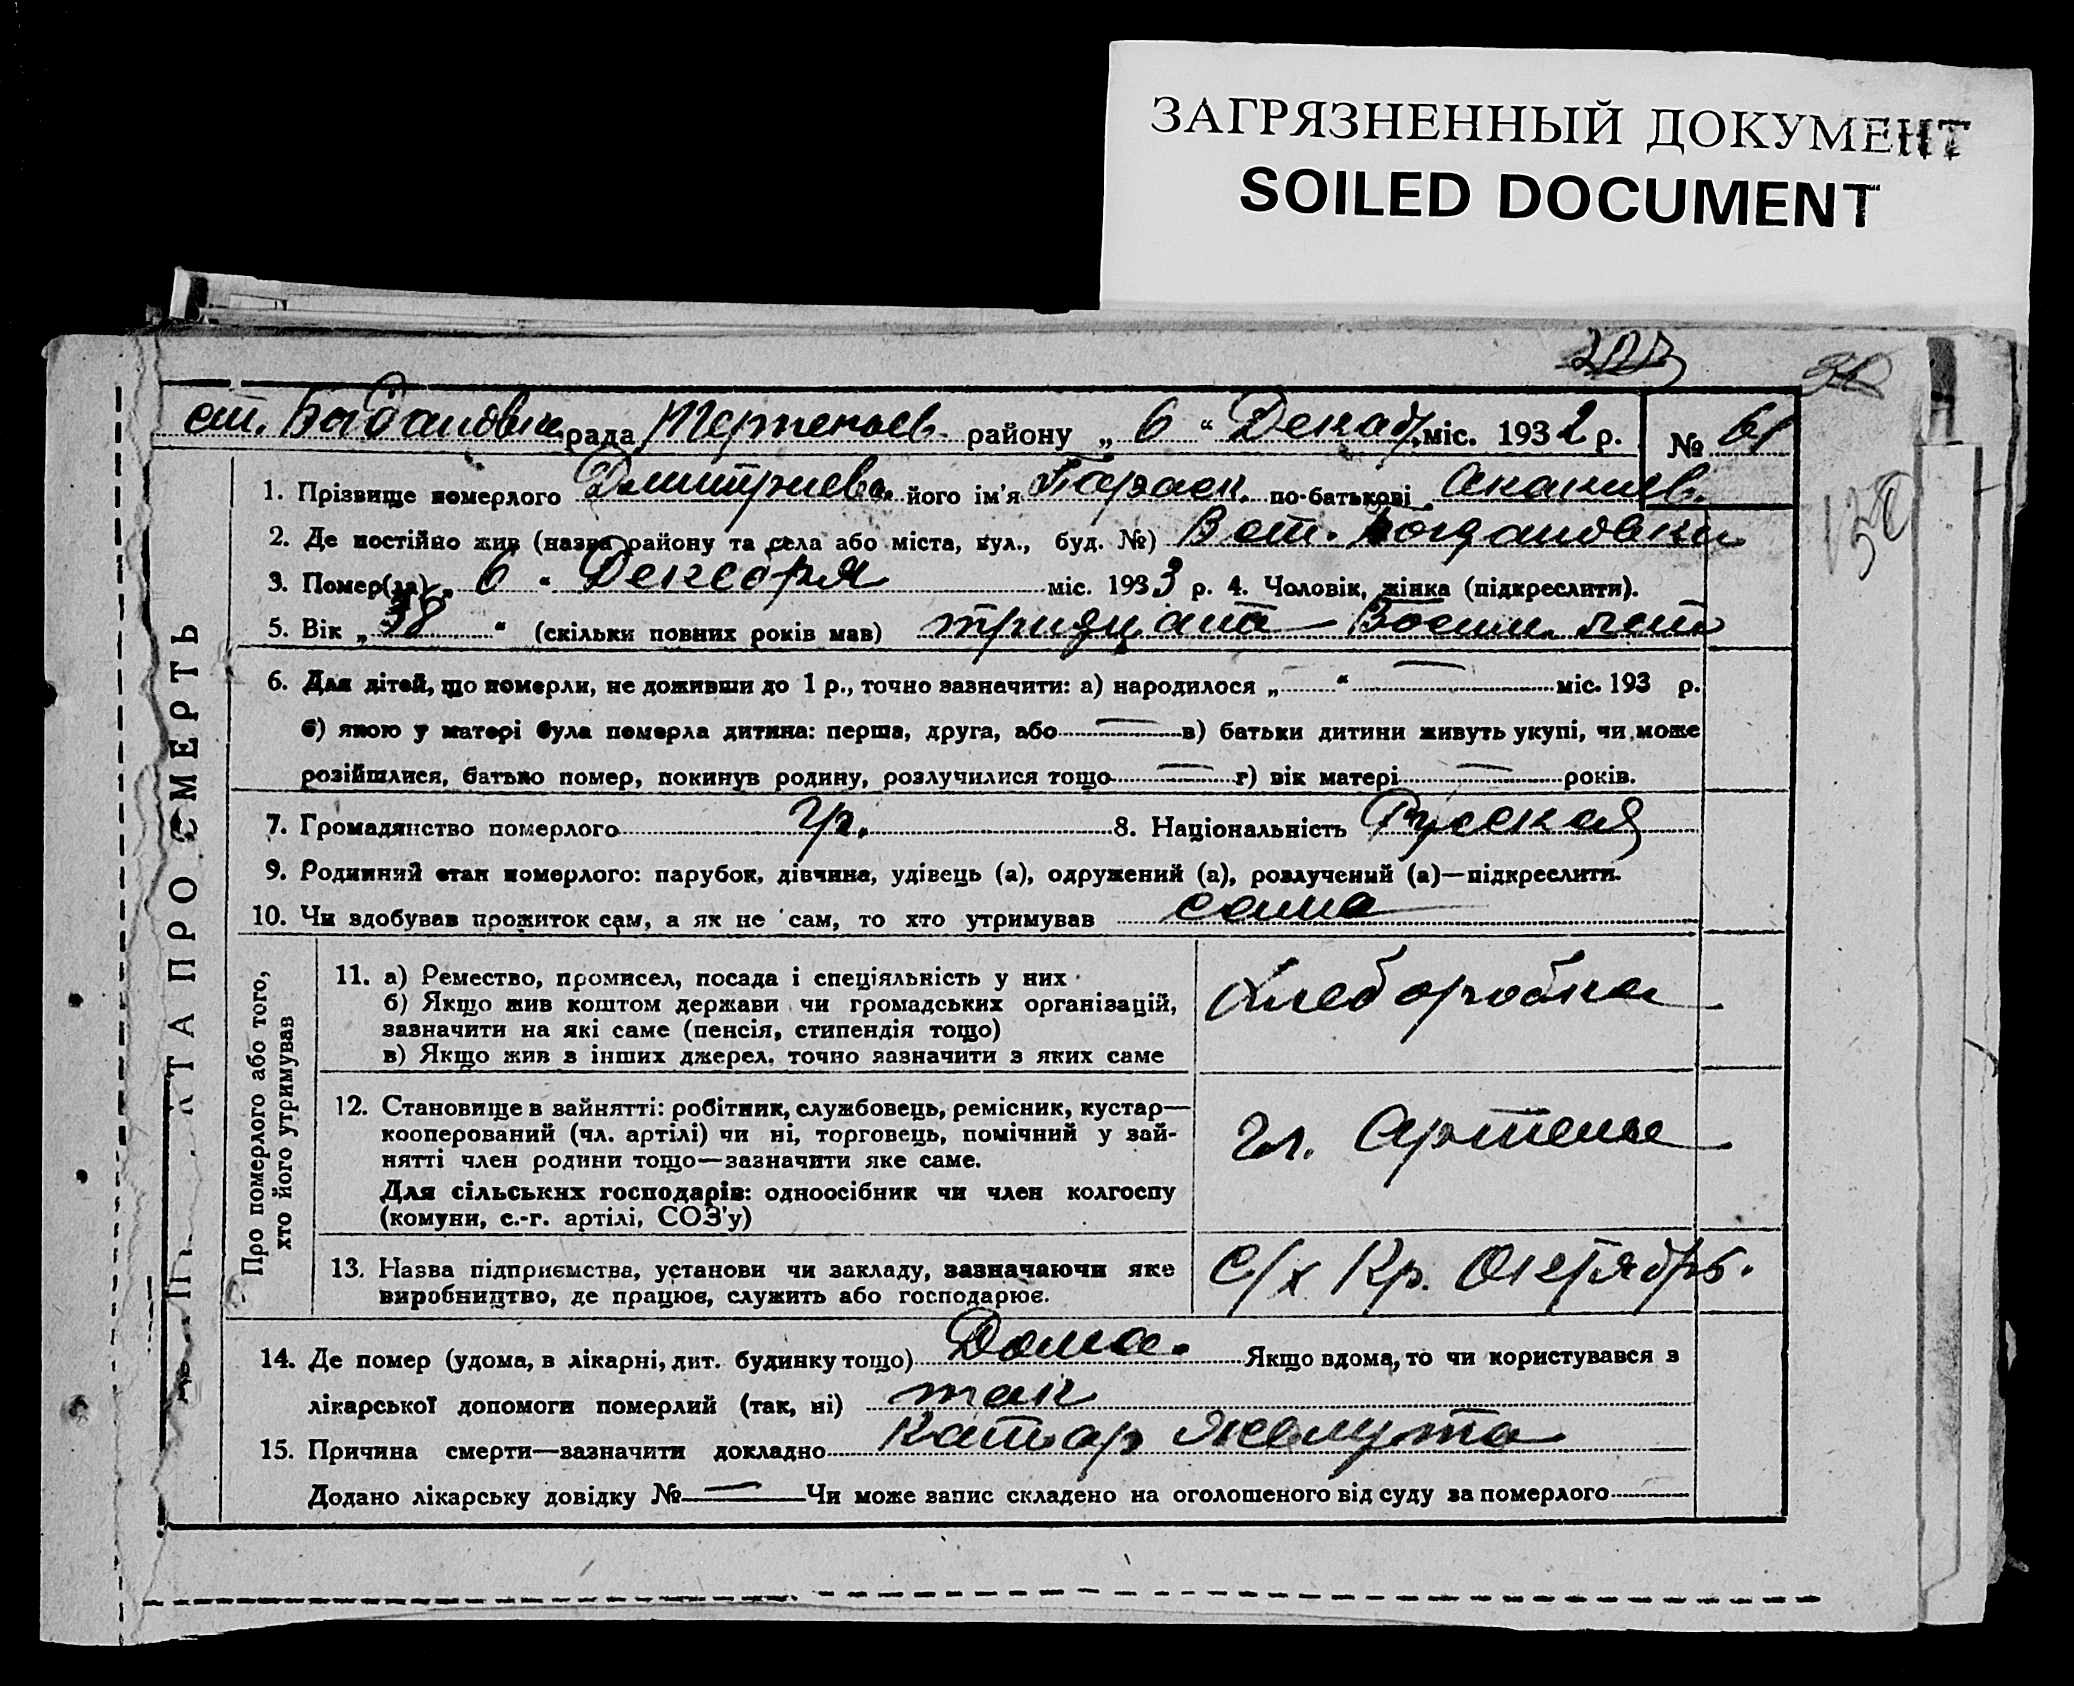 ЗАГРЯЗНЕННЫЙ ДОКУМЕНТ
SOILED DOCUMENT
ст. Богдановка рада району „ 6 “ Декаб. міс. 1932 р. № 61
1. Прізвище померлого Дмитриева його ім'я Параск. по-батькові Ананиев.
2. Де постійно жив (назва району та села або міста, вул., буд. №) В ст. Богдановки
3. Помер(ла) „ 6 “ Декабря міс. 1933 р. 4. Чоловік, жінка (підкреслити).
5. Вік „ 38 “ (скільки повних років мав) тридцать Восим лет
6. Для дітей, що померли, не доживши до 1 р., точно зазначити: а) народилося „ — “ — міс. 193 р.
б) якою у матері була померла дитина: перша, друга, або — в) батьки дитини живуть укупі, чи може
розійшлися, батько помер, покинув родину, розлучилися тощо — г) вік матері — років.
7. Громадянство померлого гр. 8. Національність Русская
9. Родинний стан померлого: парубок, дівчина, удівець (а), одружений (а), розлучений (а)—підкреслити.
10. Чи здобував прожиток сам, а як не сам, то хто утримував сама
Про померлого або того,
хто його утримував
11. а) Ремество, промисел, посада і спеціяльність у них
б) Якщо жив коштом держави чи громадських організацій,
зазначити на які саме (пенсія, стипендія тощо)
в) Якщо жив з інших джерел, точно зазначити з яких саме
Хлеборобка
12. Становище в зайнятті: робітник, службовець, ремісник, кустар—
кооперований (чл. артілі) чи ні, торговець, помічний у зай-
нятті член родини тощо—зазначити яке саме.
Для сільських господарів: одноосібник чи член колгоспу
(комуни, с.-г. артілі, СОЗ'у)
чл. Артели
13. Назва підприємства, установи чи закладу, зазначаючи яке
виробництво, де працює, служить або господарює.
С/х Кр. Октябрь.
14. Де помер (удома, в лікарні, дит. будинку тощо) Дома. Якщо вдома, то чи користувався з
лікарської допомоги померлий (так, ні) так
15. Причина смерти—зазначити докладно Катар Желутка
Додано лікарську довідку № — Чи може запис складено на оголошеного від суду за померлого
КТ А ПРО СМЕРТЬ